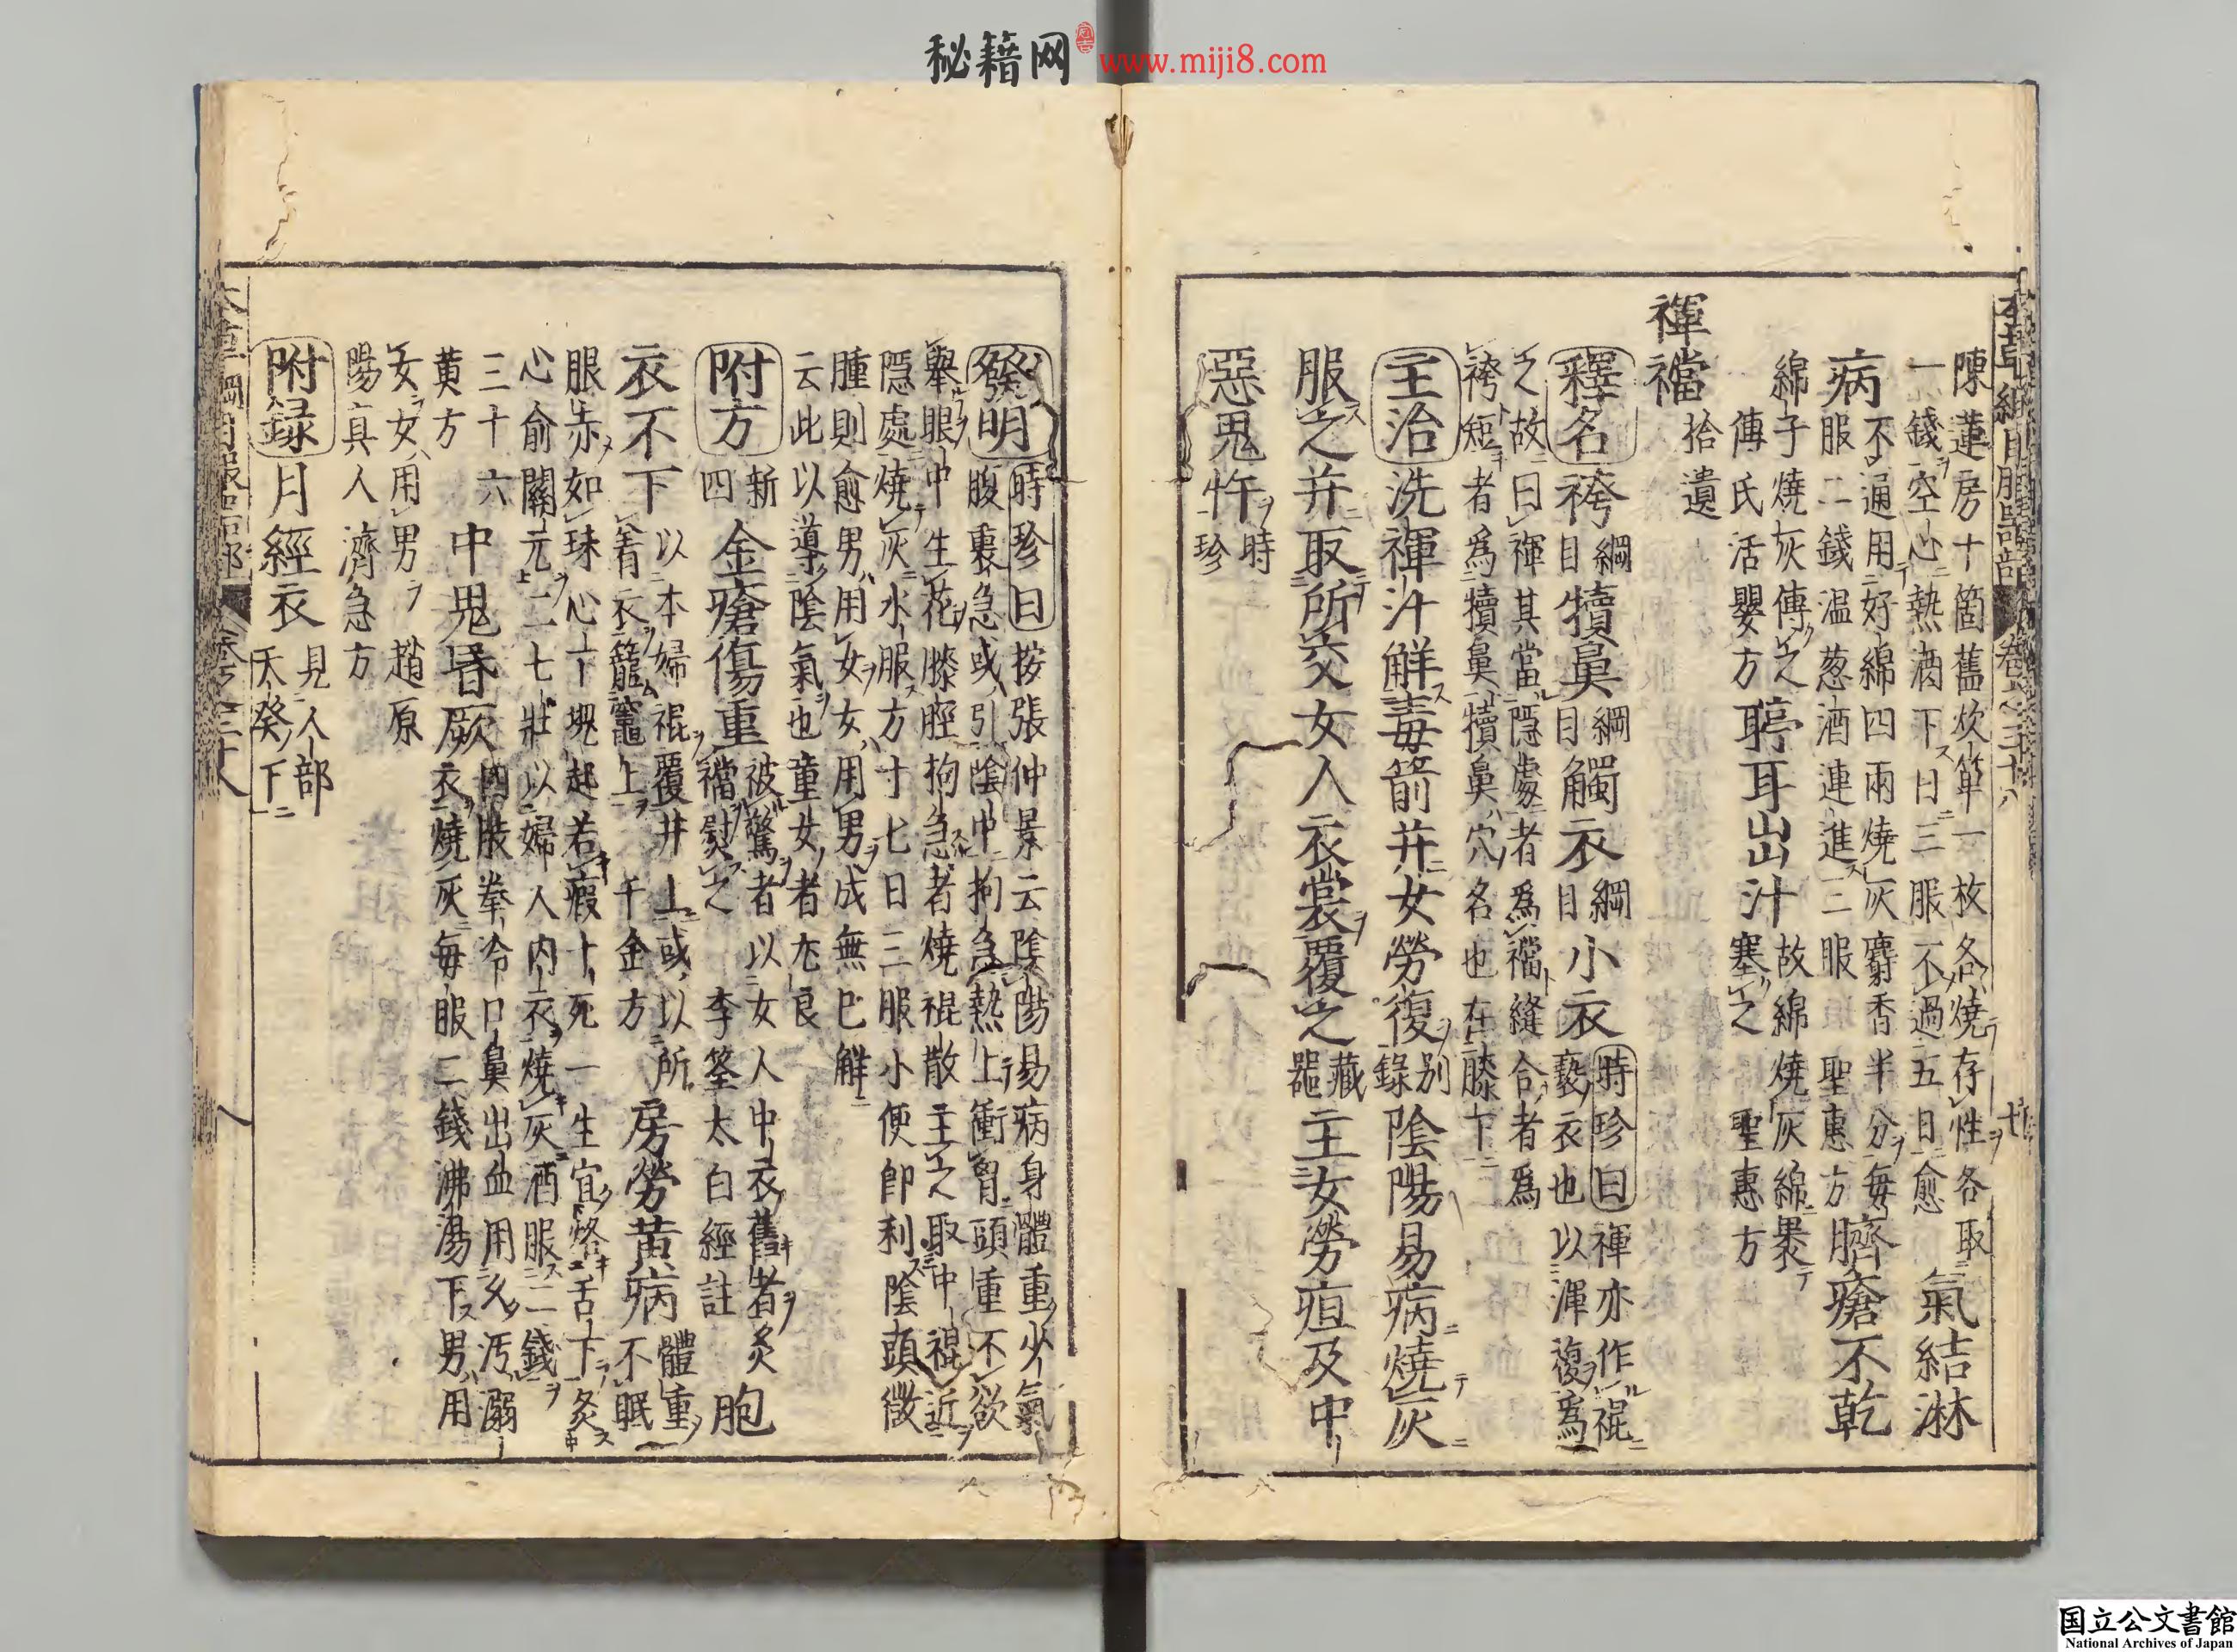 秘籍网 www.miji8.com
陳蓮房十箇舊炊箄一枚各燒存性各取
一錢空心熱酒下日三服不過五日愈 氣結淋
病 不通用好綿四兩燒灰麝香半分每
服二錢温葱酒連進三服 聖惠方 臍瘡不乾
綿子燒灰傅之 聤耳出汁 故綿燒灰綿褁
傅氏活嬰方 塞之 聖惠方
褌襠 拾遺
釋名 袴 綱目 犢鼻 綱目 觸衣 綱目 小衣 時珍曰 褌亦作裩
褻衣也以渾複為
之故曰褌其當隱處者為襠縫合者為
袴短者為犢鼻犢鼻穴名也在膝下
主治 洗褌汁解毒箭并女勞復 别錄 陰陽易病燒灰
服之并取所交女人衣裳覆之 藏器 主女勞疸及中
惡鬼忤 時珍
發明 時珍曰 按張仲景云陰陽易病身體重少氣
腹裏急或引陰中拘急熱上衝胷頭重不欲
舉眼中生花膝脛拘急者燒裩散主之取中裩近
隱處燒灰水服方寸匕日三服小便即利陰頭微
腫則愈男用女女用男成無已解
云此以導陰氣也童女者尤良
附方 新四 金瘡傷重 被驚者以女人中衣舊者炙
襠熨之 李筌太白經註 胞
衣不下 以本婦裩覆井上或以所
着衣籠竈上 千金方 房勞黄病 體重不眠
眼赤如珠心下塊起若瘕十死一生宜烙舌下灸
心俞關元二七壯以婦人内衣燒灰酒服二錢
三十六
黄方 中鬼昏厥 四肢拳冷口鼻出血用久汚溺
衣燒灰每服二錢沸湯下男用
女女用男 趙原
陽真人濟急方
附録 月經衣 見人部
天癸下
国立公文書館
National Archives of Japan